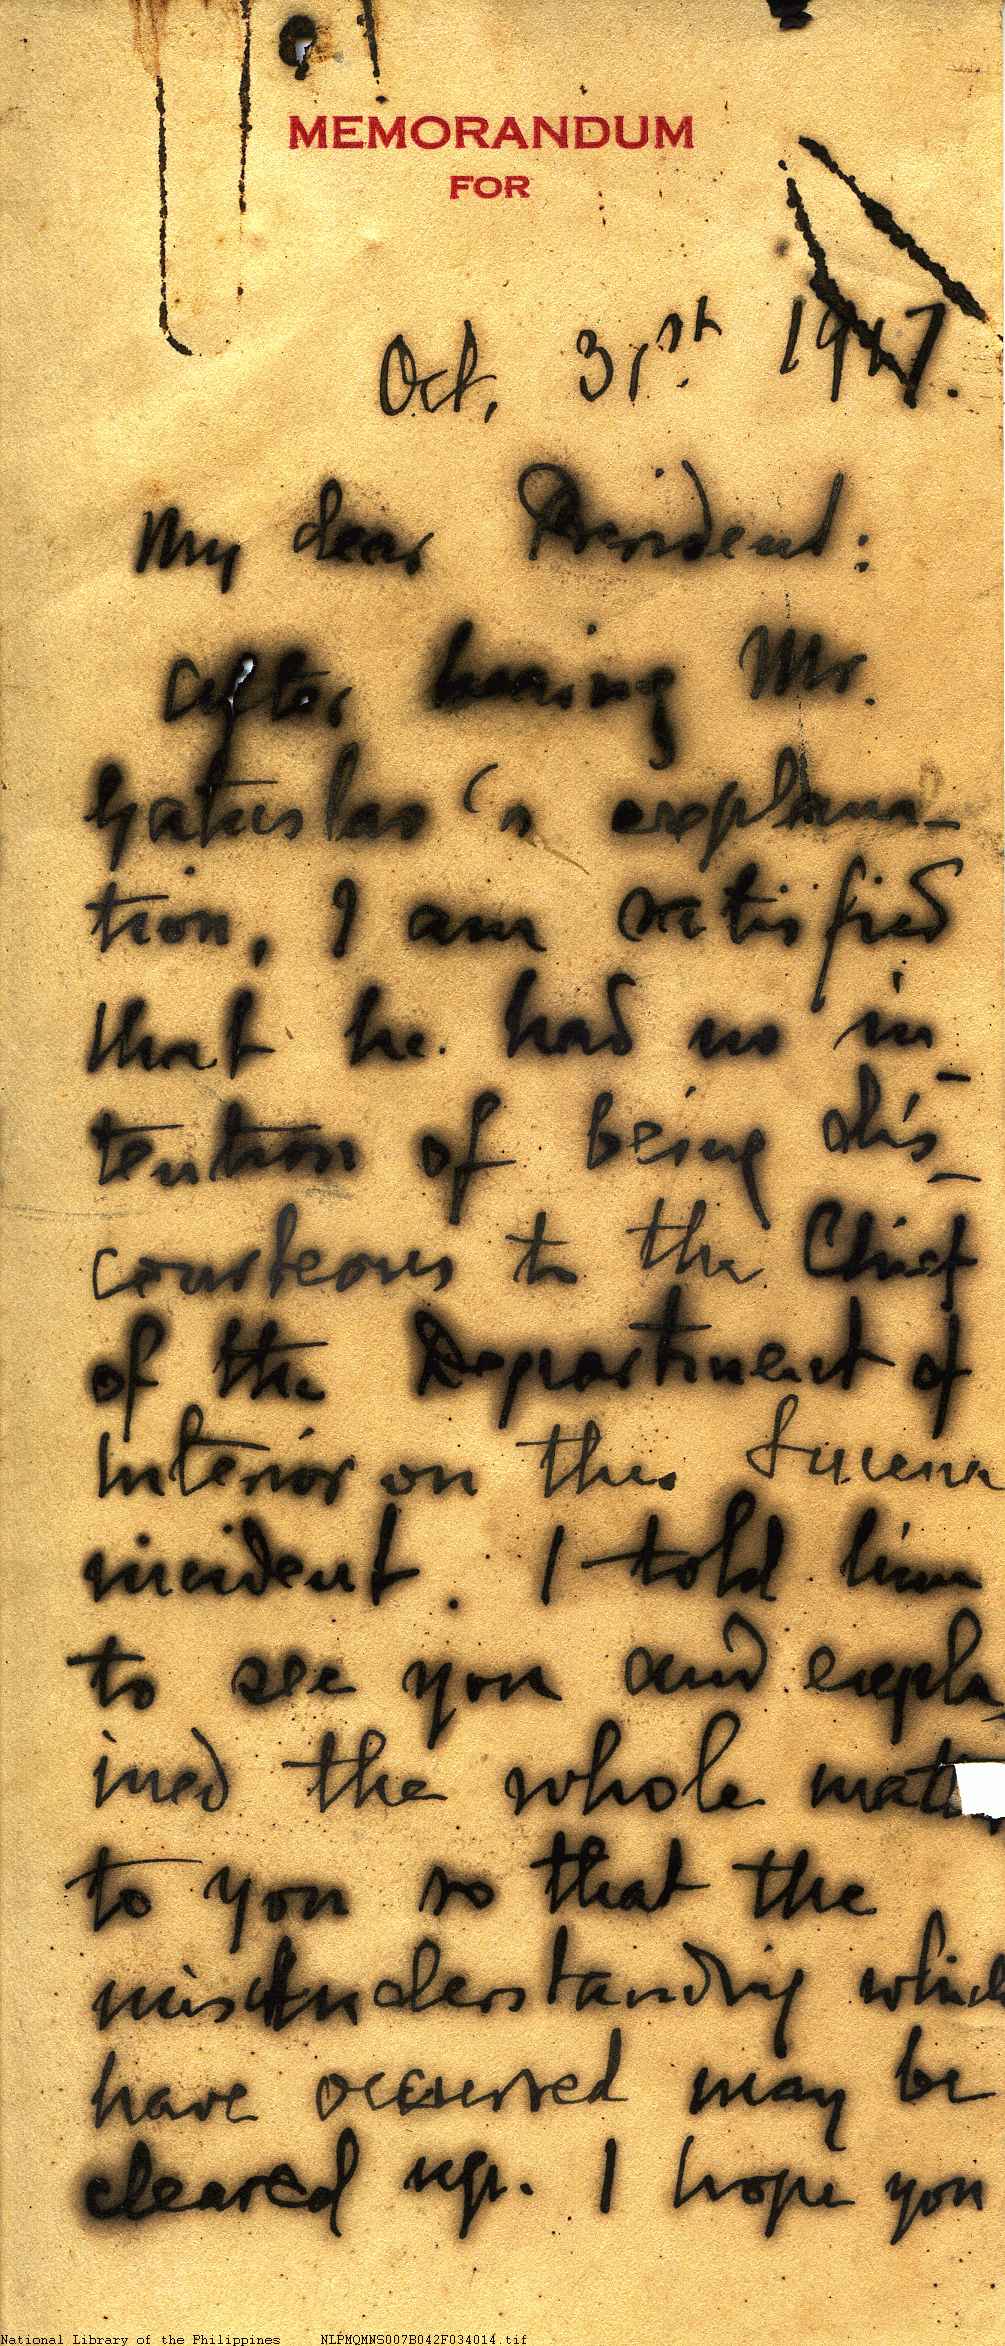 MEMORANDUM
FOR
Oct. 31st. 1917.
My dear President:
After hearing Mr.
Gatuslao's explana-
tion, I am satisfied
that he had no in-
tention of being dis-
courteous to the Chief
of the Department of
Interior on the Lucena
incident. I told him
to see you and expla-
ined the whole matt
to you so that the
misunderstanding which
have occurred may be
cleared up. I hope you
National Library of the Philippines NLPMQMNS007B042F034014.tif